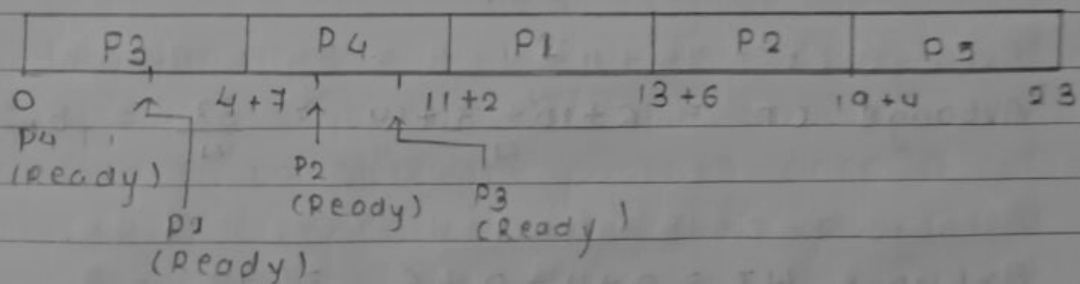 P3 P4 P1 P2 P5
0 4+7 11+2 13+6 19+4 23
P4
(Ready) P2 P3
(Ready) (Ready)
P1
(Ready)